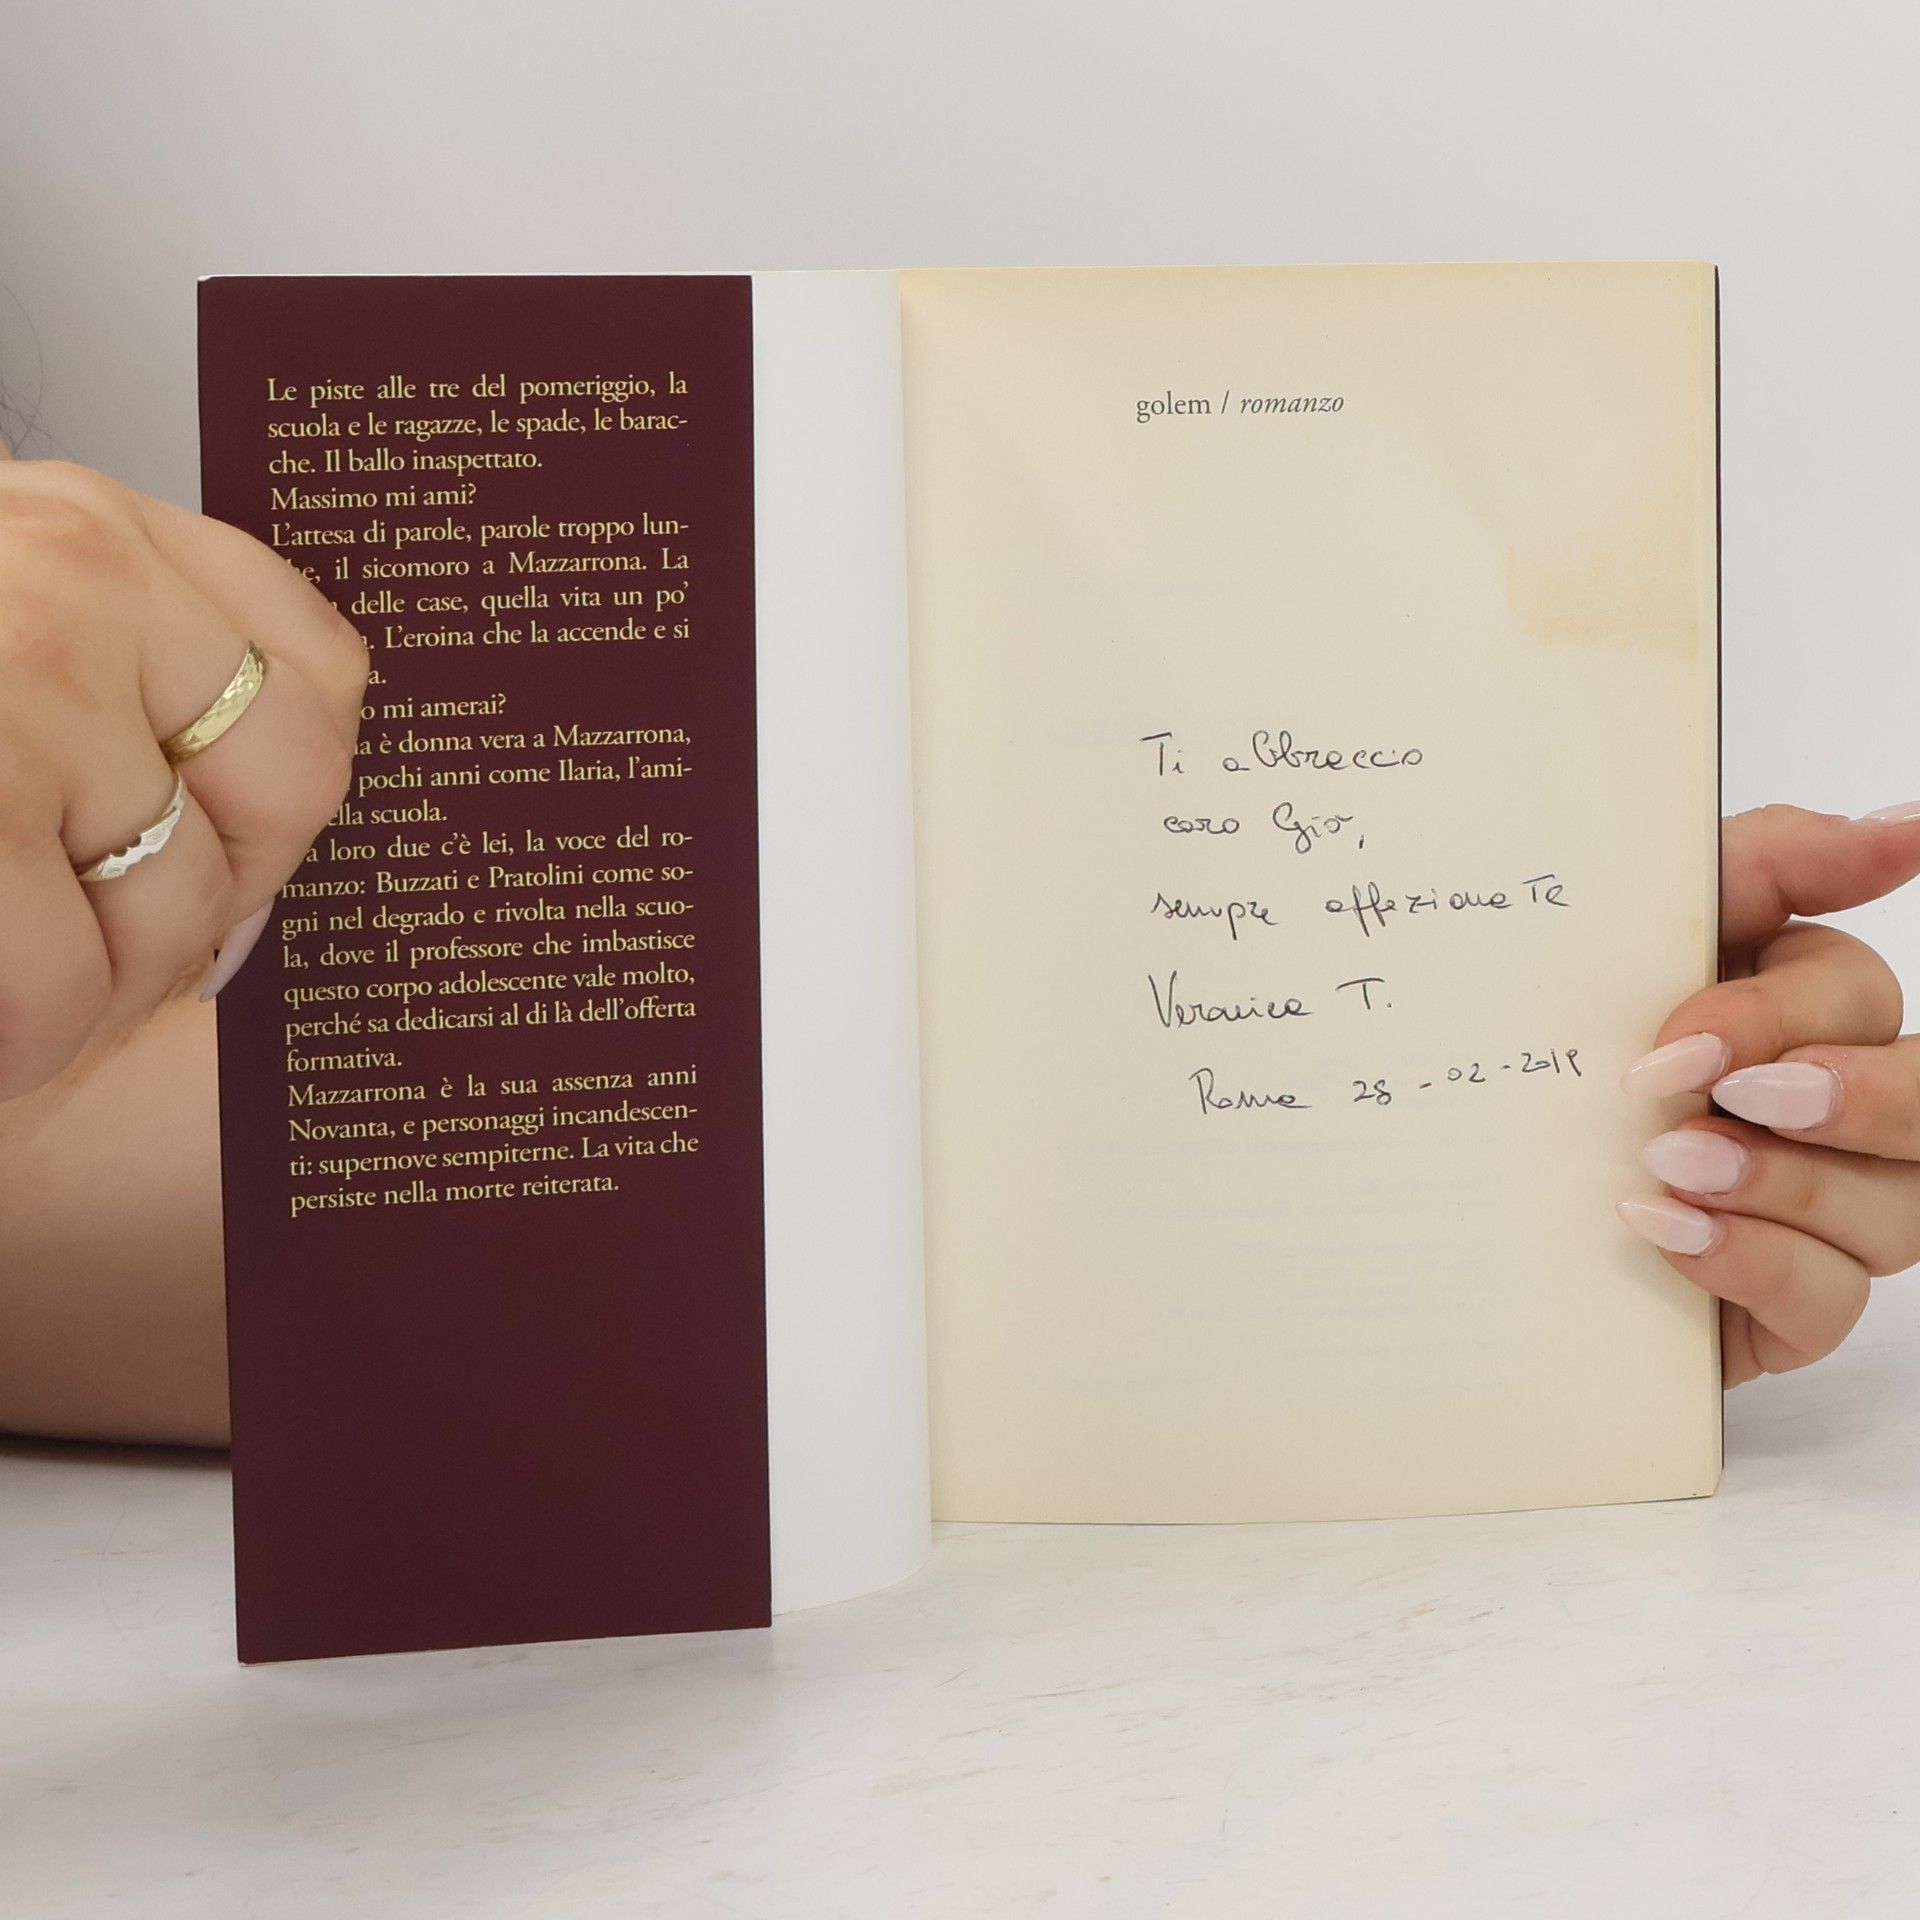 Le piste alle tre del pomeriggio, la
scuola e le ragazze, le spade, le barac-
che. Il ballo inaspettato.
Massimo mi ami?
L'attesa di parole, parole troppo lun-
he, il sicomoro a Mazzarrona. La
delle case, quella vita un po'
a. L'eroina che la accende e si
a.
o mi amerai?
na è donna vera a Mazzarrona,
pochi anni come Ilaria, l'ami-
ella scuola.
a loro due c'è lei, la voce del ro-
manzo: Buzzati e Pratolini come so-
gni nel degrado e rivolta nella scuo-
la, dove il professore che imbastisce
questo corpo adolescente vale molto,
perché sa dedicarsi al di là dell'offerta
formativa.
Mazzarrona è la sua assenza anni
Novanta, e personaggi incandescen-
ti: supernove sempiterne. La vita che
persiste nella morte reiterata.
golem / romanzo
Ti abbraccio
caro Giò,
sempre affezionata
Veronica T.
Roma 28-02-2019